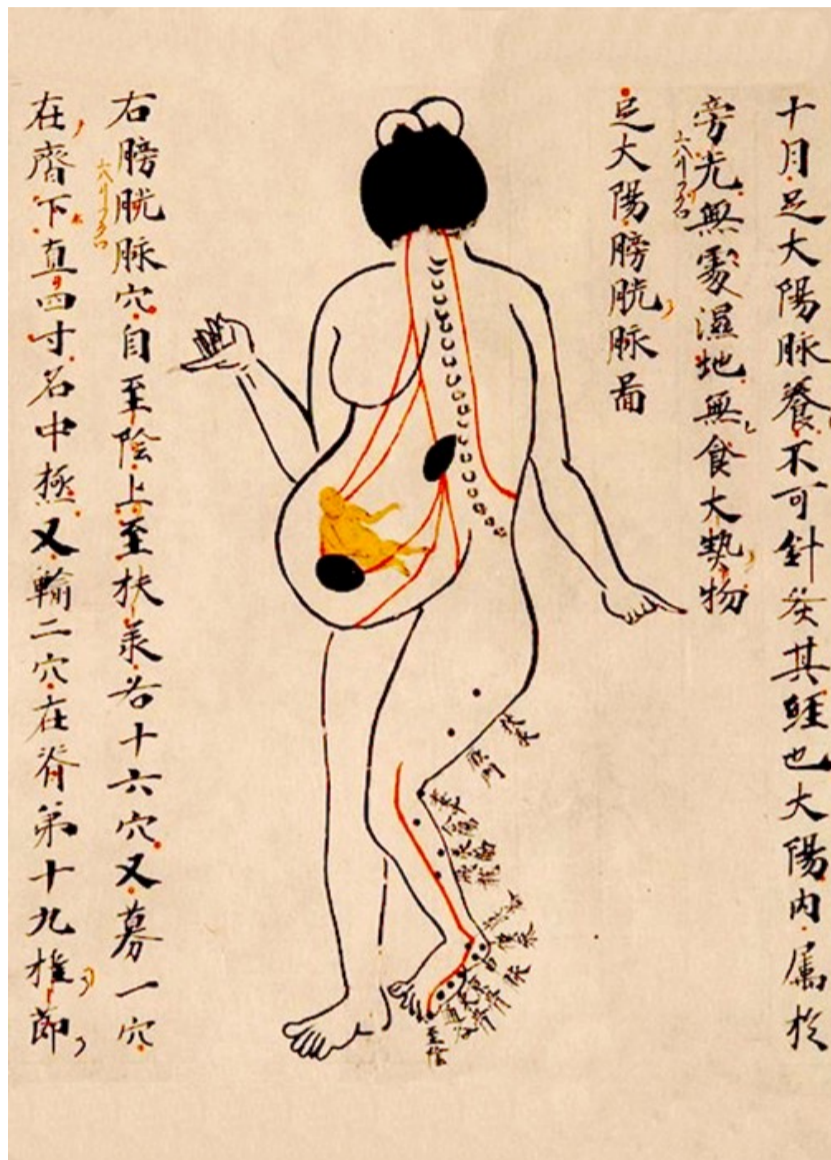 十月足大陽脉養不可針灸其經也大陽内属於
旁光無處濕地無食大熱物
足大陽膀胱脉啚
扶承
殷門
至陰
右膀胱脉穴自至陰上至扶承各十六穴又募一穴
在齊下直四寸名中極又輸二穴在脊第十九椎節